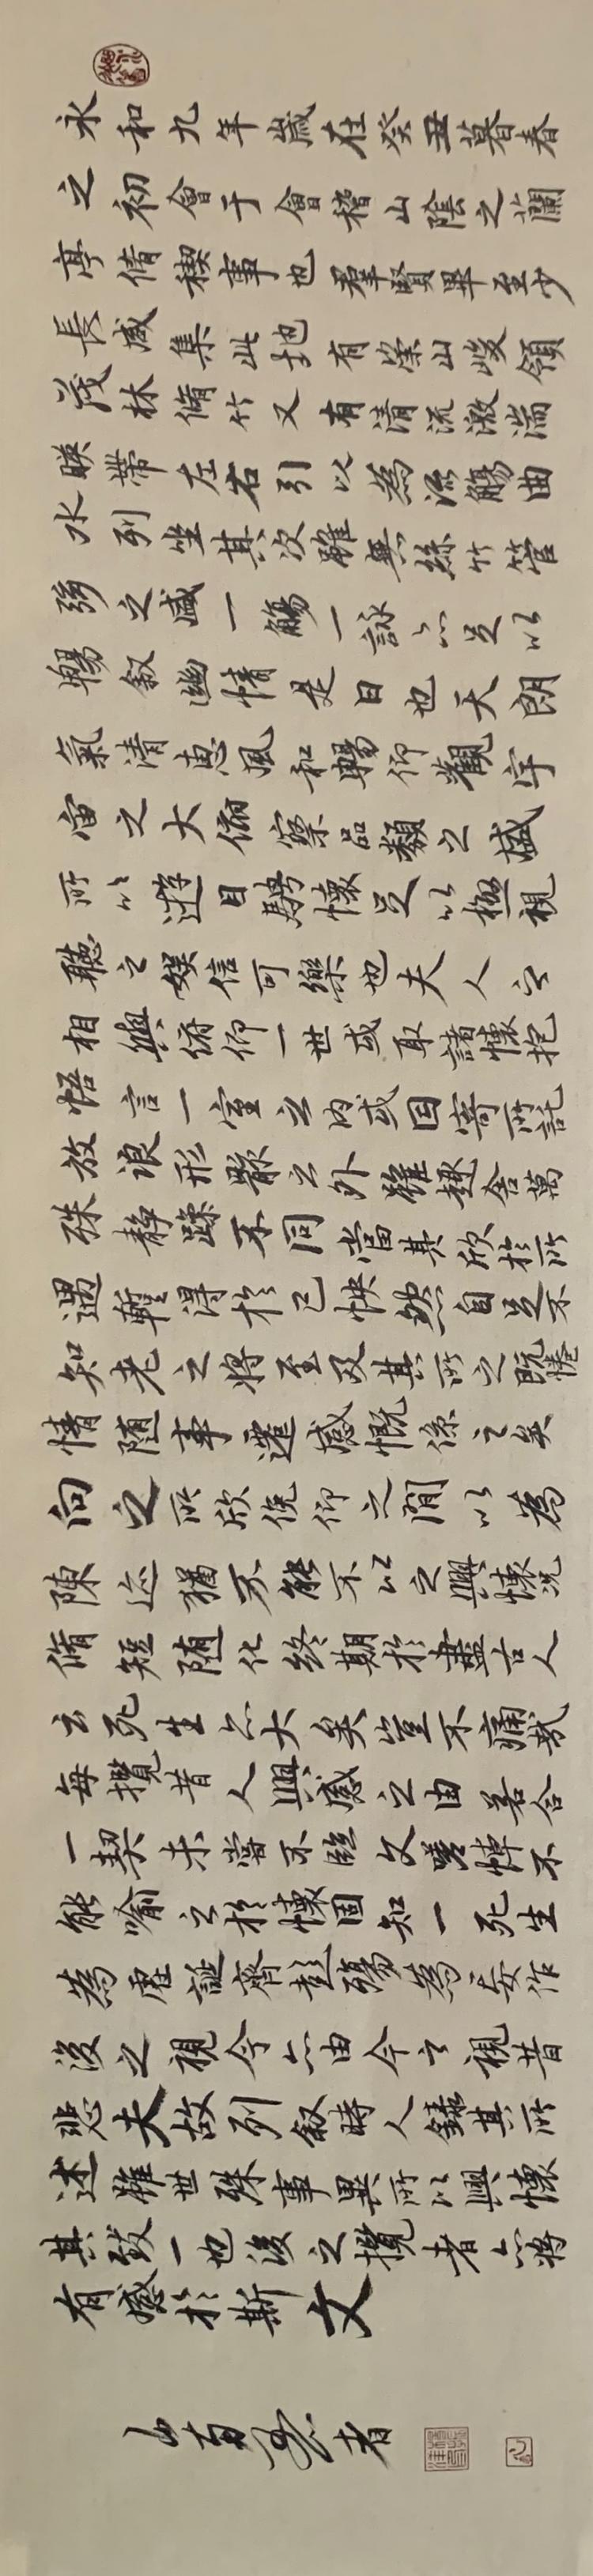 永和九年歲在癸丑暮春
之初會于會稽山陰之蘭
亭脩稧事也羣賢畢至少
長咸集此地有崇山峻領
茂林脩竹又有清流激湍
暎帶左右引以為流觴曲
水列坐其次雖無絲竹管
弦之盛一觴一詠亦足以
暢叙幽情是日也天朗
氣清惠風和暢仰觀宇
宙之大俯察品類之盛
所以遊目騁懷足以極視
聽之娛信可樂也夫人之
相與俯仰一世或取諸懷抱
悟言一室之內或因寄所託
放浪形骸之外雖趣舍萬
殊靜躁不同當其欣於所
遇暫得於己怏然自足不
知老之將至及其所之既惓
情随事遷感慨係之矣
向之所欣俛仰之間以為
陳迹猶不能不以之興懷況
脩短随化終期於盡古人
云死生亦大矣豈不痛哉
每攬昔人興感之由若合
一契未嘗不臨文嗟悼不
能喻之於懷固知一死生
為虛誕齊彭殤為妄作
後之視今亦由今之視昔
悲夫故列叙時人錄其所
述雖世殊事異所以興懷
其致一也後之攬者亦將
有感於斯文
南墨者